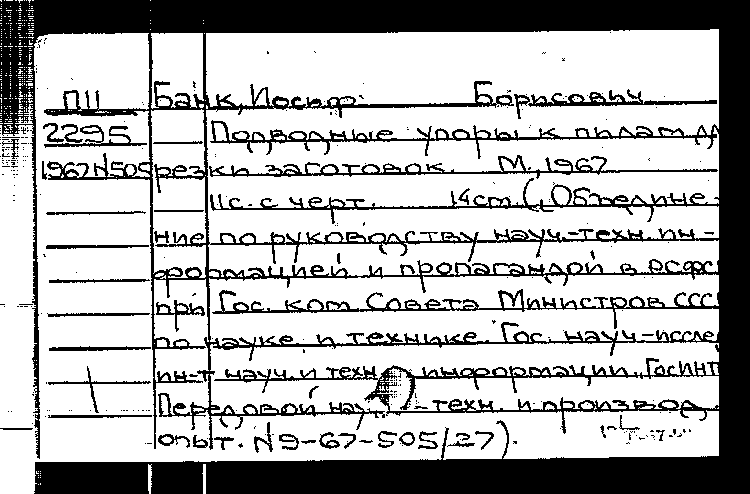 П11 Банк, Иосиф Борисович
2295 Подводные упоры к пилам дл
1967 N505 резки заготовок. М., 1967
11с. с черт. 14см. (Объедине-
ние по руководству науч.-техн. ин-
формацией и пропагандой в РСФС
при Гос. ком Совета Министров ССС
по науке и технике. Гос. науч-иссле
ин-т науч. и техн. информации „ГОСИНТ
Передовой науч.-техн. и производ.
опыт. N9-67-505/27).